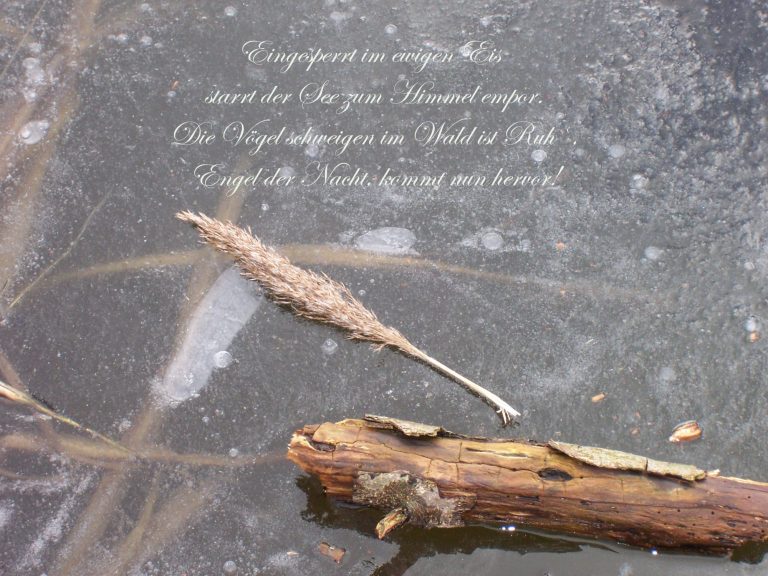 Eingesperrt im ewigen Eis
starrt der See zum Himmel empor.
Die Vögel schweigen im Wald ist Ruh ,
Engel der Nacht, kommt nun hervor!